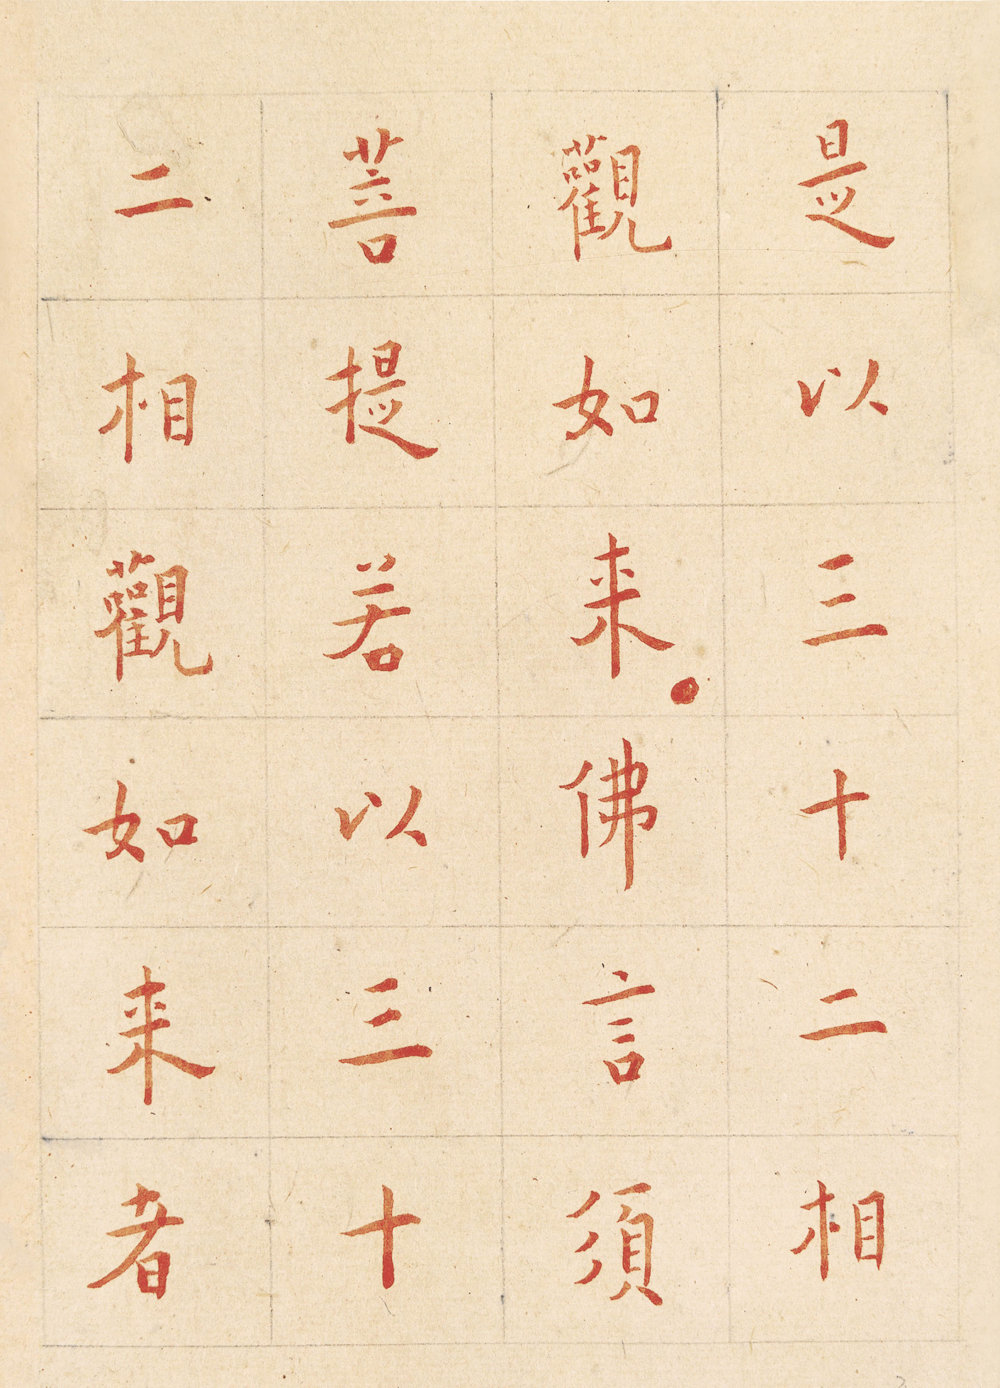 是以三十二相
觀如来。佛言須
菩提若以三十
二相觀如来者